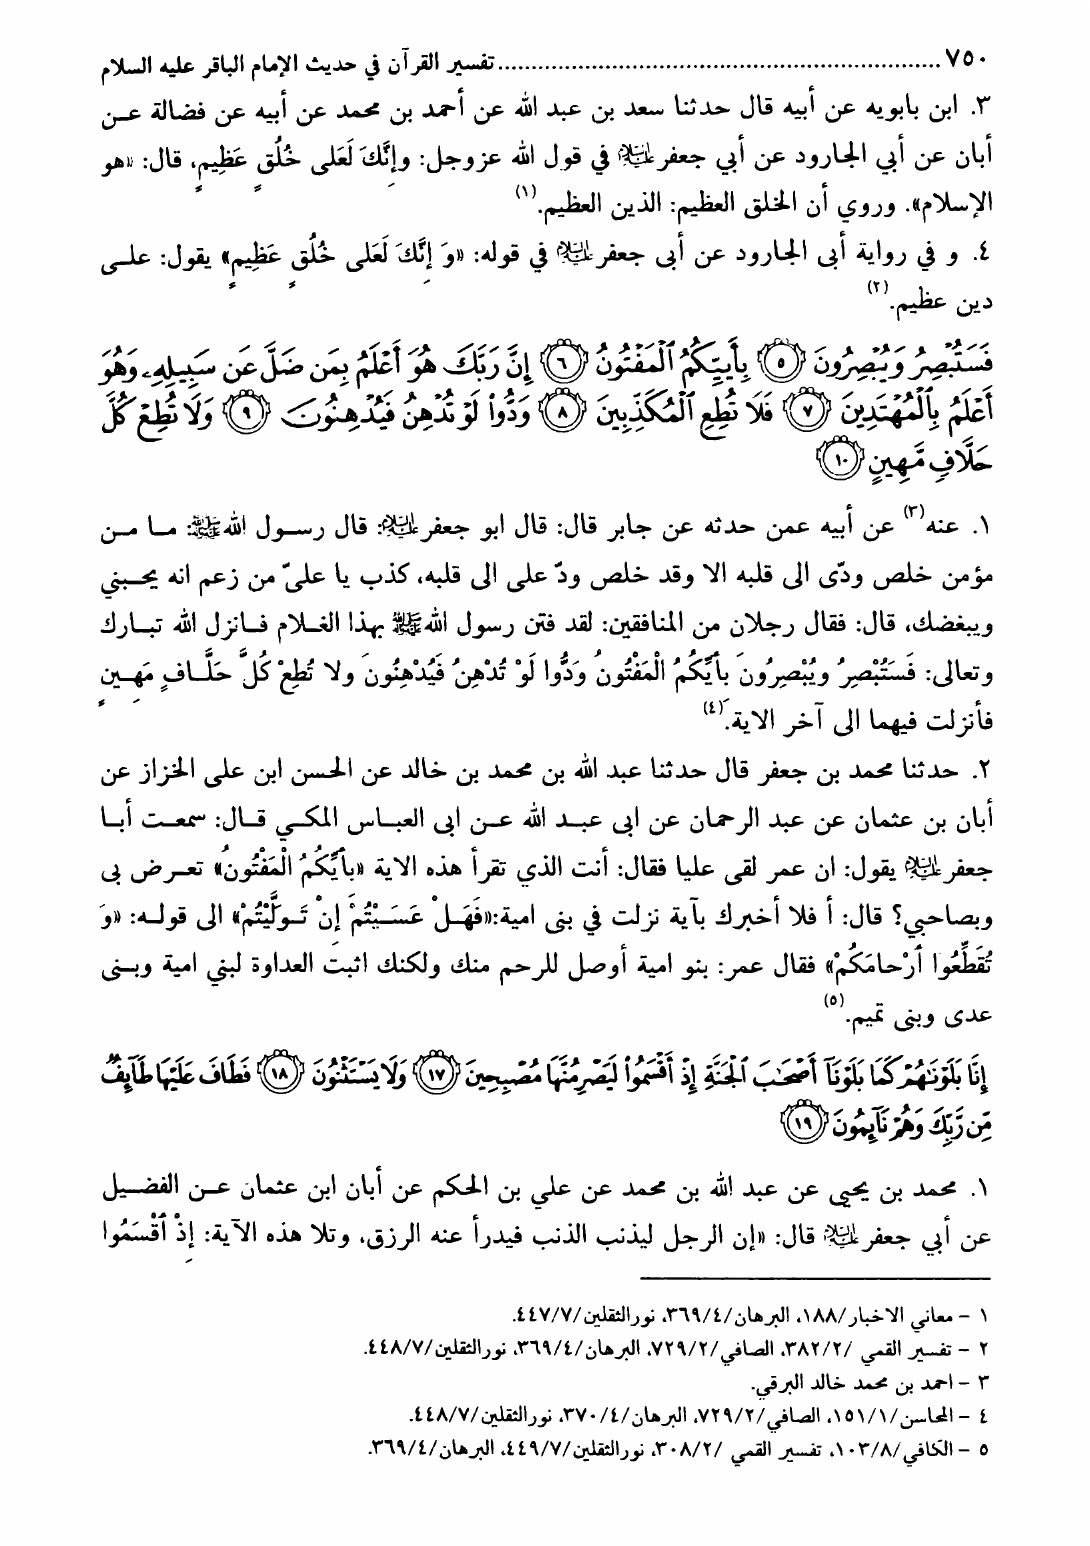 ٧٥٠ .................................................................. تفسير القرآن في حديث الإمام الباقر عليه السلام
٣. ابن بابويه عن أبيه قال حدثنا سعد بن عبد الله عن أحمد بن محمد عن أبيه عن فضالة عن
أبان عن أبي الجارود عن أبي جعفر عليه السلام في قول الله عزوجل: وإنَّكَ لَعَلى خُلُقٍ عَظِيمٍ، قال: «هو
الإسلام». وروي أن الخلق العظيم: الذين العظيم.(١)
٤. و في رواية أبى الجارود عن أبى جعفر عليه السلام في قوله: «وَ إنَّكَ لَعَلى خُلُقٍ عَظِيمٍ» يقول: على
دين عظيم.(٢)
فَسَتُبْصِرُ وَيُبْصِرُونَ ﴿٥﴾ بِأَييِّكُمُ ٱلْمَفْتُونُ ﴿٦﴾ إِنَّ رَبَّكَ هُوَ أَعْلَمُ بِمَن ضَلَّ عَن سَبِيلِهِۦ وَهُوَ
أَعْلَمُ بِٱلْمُهْتَدِينَ ﴿٧﴾ فَلَا تُطِعِ ٱلْمُكَذِّبِينَ ﴿٨﴾ وَدُّوا۟ لَوْ تُدْهِنُ فَيُدْهِنُونَ ﴿٩﴾ وَلَا تُطِعْ كُلَّ
حَلَّافٍ مَّهِينٍ ﴿١٠﴾
١. عنه(٣) عن أبيه عمن حدثه عن جابر قال: قال ابو جعفر عليه السلام: قال رسول الله ﷺ: ما من
مؤمن خلص ودّى الى قلبه الا وقد خلص ودّ على الى قلبه، كذب يا علىّ من زعم انه يحبني
ويبغضك، قال: فقال رجلان من المنافقين: لقد فتن رسول الله ﷺ بهذا الغلام فانزل الله تبارك
وتعالى: فَسَتُبْصِرُ ويُبْصِرُونَ بأيِّكُمُ الْمَفْتُونُ وَدُّوا لَوْ تُدْهِنُ فَيُدْهِنُونَ ولا تُطِعْ كُلَّ حَلَّافٍ مَهِينٍ
فأنزلت فيهما الى آخر الاية.(٤)
٢. حدثنا محمد بن جعفر قال حدثنا عبد الله بن محمد بن خالد عن الحسن ابن على الخزاز عن
أبان بن عثمان عن عبد الرحمان عن ابى عبد الله عن ابى العباس المكي قال: سمعت أبا
جعفر عليه السلام يقول: ان عمر لقى عليا فقال: أنت الذي تقرأ هذه الاية «بأيِّكُمُ الْمَفْتُونُ» تعرض بى
وبصاحبي؟ قال: أ فلا أخبرك بآية نزلت في بنى امية:«فَهَلْ عَسَيْتُمْ إنْ تَوَلَّيْتُمْ» الى قوله: «وَ
تُقَطِّعُوا أرْحامَكُمْ» فقال عمر: بنو امية أوصل للرحم منك ولكنك اثبت العداوة لبني امية وبنى
عدى وبنى تميم.(٥)
إِنَّا بَلَوْنَٰهُمْ كَمَا بَلَوْنَآ أَصْحَٰبَ ٱلْجَنَّةِ إِذْ أَقْسَمُوا۟ لَيَصْرِمُنَّهَا مُصْبِحِينَ ﴿١٧﴾ وَلَا يَسْتَثْنُونَ ﴿١٨﴾ فَطَافَ عَلَيْهَا طَآئِفٌ
مِّن رَّبِّكَ وَهُمْ نَآئِمُونَ ﴿١٩﴾
١. محمد بن يحيى عن عبد الله بن محمد عن علي بن الحكم عن أبان ابن عثمان عن الفضيل
عن أبي جعفر عليه السلام قال: «إن الرجل ليذنب الذنب فيدرأ عنه الرزق، وتلا هذه الآية: إذْ أقْسَمُوا
١ – معاني الاخبار/١٨٨، البرهان/٣٦٩/٤، نورالثقلين/٤٤٧/٧.
٢ – تفسير القمي /٣٨٢/٢، الصافي/٧٢٩/٢، البرهان/٣٦٩/٤، نورالثقلين/٤٤٨/٧.
٣ – احمد بن محمد خالد البرقي.
٤ – المحاسن/١٥١/١، الصافي/٧٢٩/٢، البرهان/٣٧٠/٤، نورالثقلين/٤٤٨/٧.
٥ – الكافي/١٠٣/٨، تفسير القمي /٣٠٨/٢، نورالثقلين/٤٤٩/٧، البرهان/٣٦٩/٤.